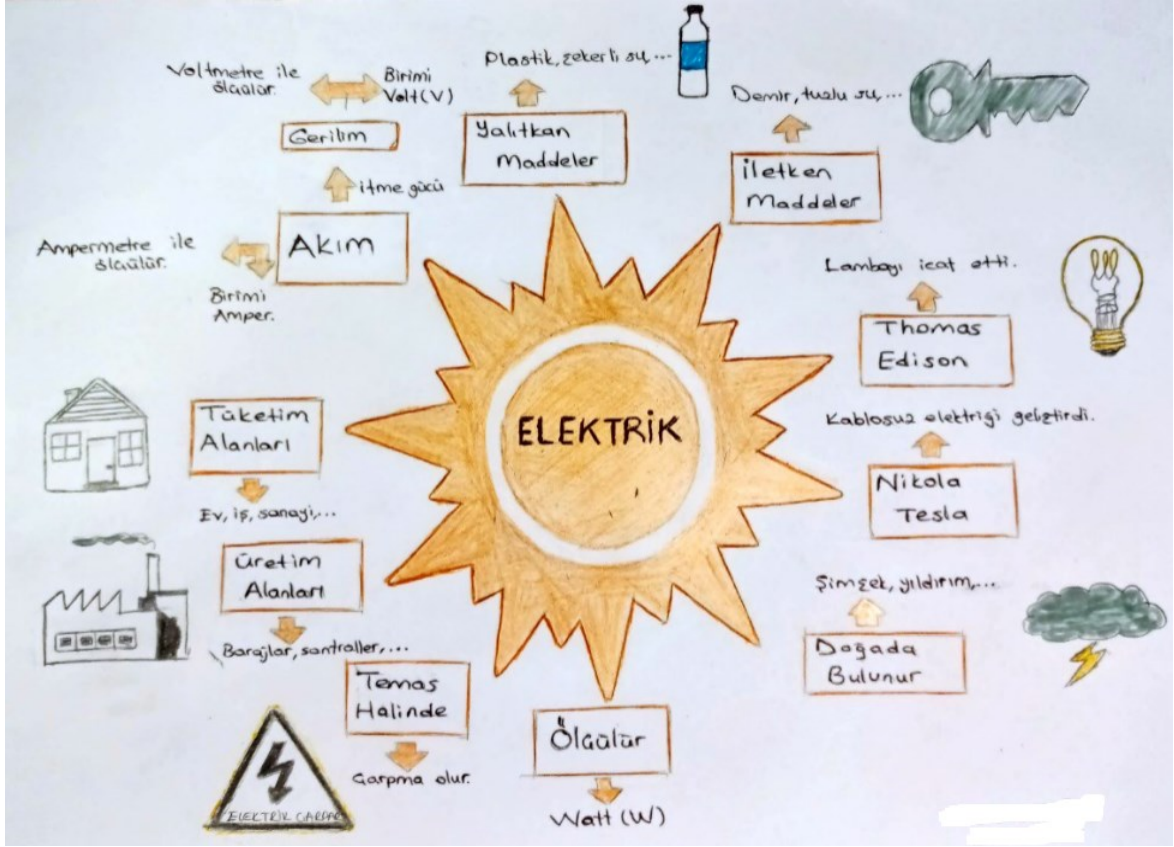 Voltmetre ile
ölçülür.
Birimi
Volt(V)
Gerilim
itme gücü
Akım
Ampermetre ile
ölçülür.
Birimi
Amper.
Plastik, şekerli su,...
Yalıtkan
Maddeler
Demir, tuzlu su,...
İletken
Maddeler
Lambayı icat etti.
Thomas
Edison
Kablosuz elektriği geliştirdi.
Nikola
Tesla
Şimşek, yıldırım,...
Doğada
Bulunur
ELEKTRİK
Tüketim
Alanları
Ev, iş, sanayi,...
Üretim
Alanları
Barajlar, santraller,...
Temas
Halinde
Çarpma olur.
ELEKTRİK ÇARPAR
Ölçülür
Watt (W)